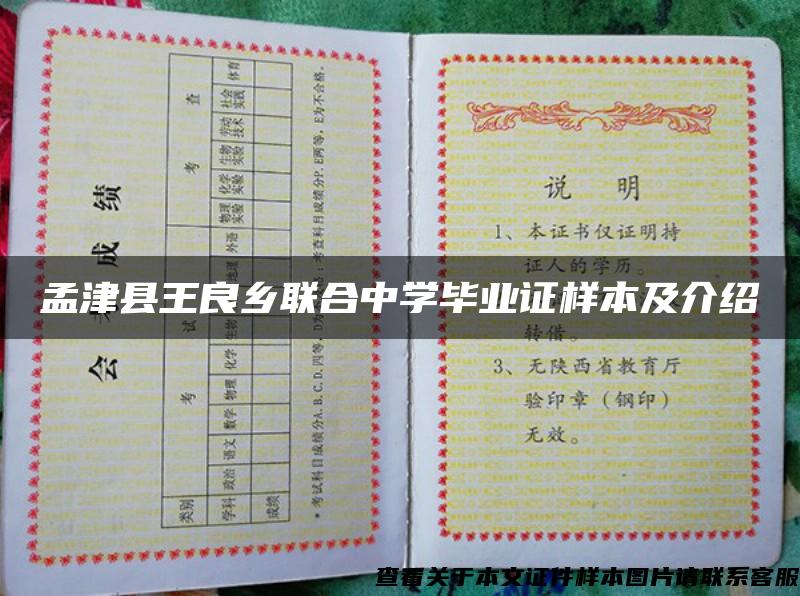 会 成绩
类别 考试 考查
学科 政治 语文 数学 物理 化学 生物 地理 外语 物理实验 化学实验 生物实验 劳动技术 社会实践 体育
成绩
*考试科目成绩分A.B.C.D.四等，D为 考查科目成绩分P、E两等，E为不合格。
说 明
1、本证书仅证明持
证人的学历。
孟津县王良乡联合中学毕业证样本及介绍
转借。
3、无陕西省教育厅
验印章（钢印）
无效。
查看关于本文证件样本图片请联系客服